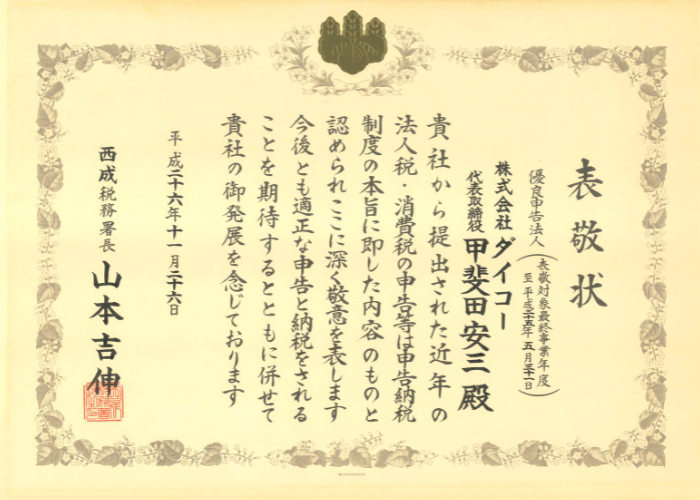 表敬状
優良申告法人
(表敬対象最終事業年度
至 平成二十五年 五月三十一日)
株式会社 ダイコー
代表取締役 甲斐田安三 殿
貴社から提出された近年の
法人税・消費税の申告等は申告納税
制度の本旨に即した内容のものと
認められここに深く敬意を表します
今後とも適正な申告と納税をされる
ことを期待するとともに併せて
貴社の御発展を念じております
平成二十六年十一月二十六日
西成税務署長 山本吉伸